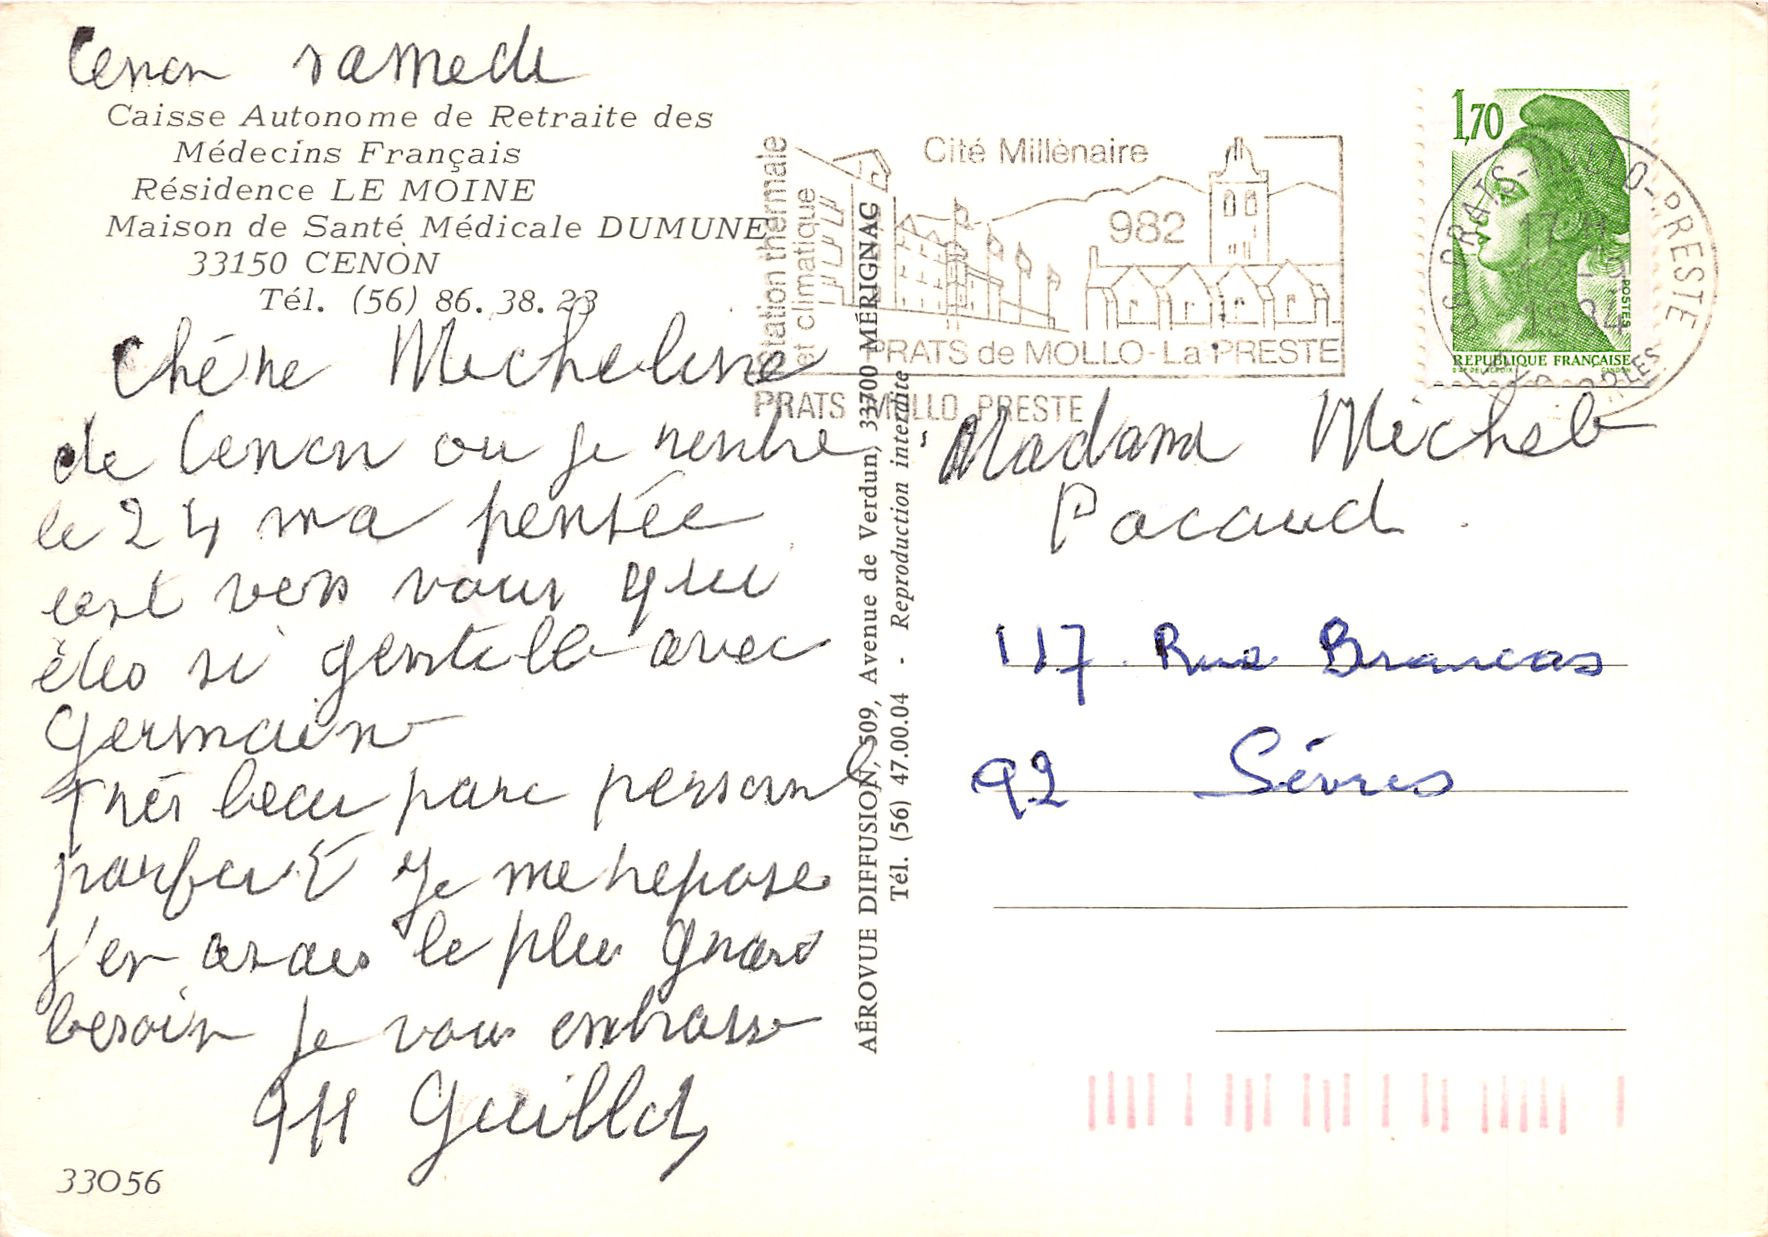 Cenon samedi
Caisse Autonome de Retraite des
Médecins Français
Résidence LE MOINE
Maison de Santé Médicale DUMUNE
33150 CENON
Tél. (56) 86. 38. 23
Chére Micheline
de Cenon ou je rentre
le 24 ma pensée
est vers vous qui
étes si gentille avec
Germain
Trés beau parc personnel
parfait Je me repose
j'en avais le plus grand
besoin Je vous embrasse
Guillot
33056
AÉROVUE DIFFUSION, 509, Avenue de Verdun, 33700 MÉRIGNAC
Tél. (56) 47.00.04 - Reproduction interdite
Station thermale
et climatique
Cité Millénaire
982
PRATS de MOLLO-La PRESTE
PRATS MOLLO PRESTE
1,70
POSTES
REPUBLIQUE FRANÇAISE
D'AP. DELACROIX GANDON
66 PRATS-MOLLO-PRESTE
17 H
12
1984
Madame Michel
Pacaud
117 Rue Brancas
92 Sévres